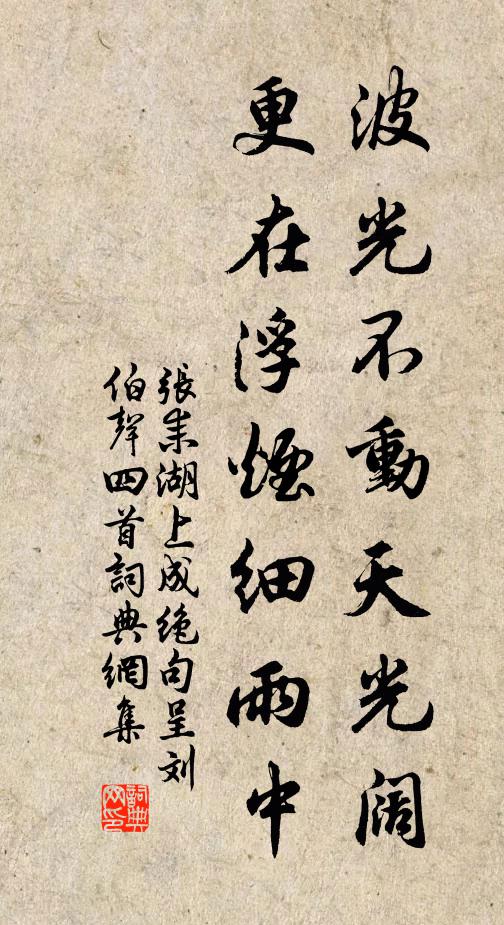 波光不動天光阔
更在浮煙细雨中
張耒湖上成绝句呈刘
伯聲四首詞典網集
詞典
网印